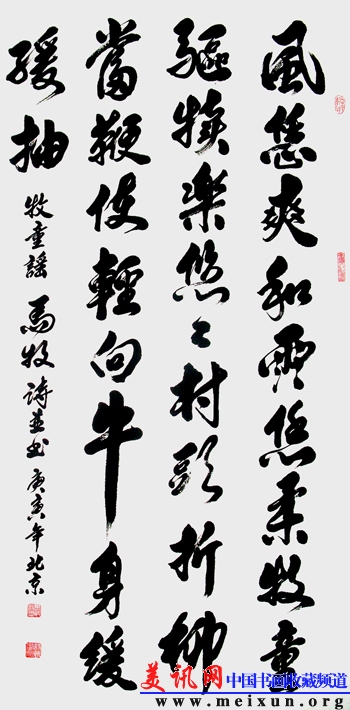 風恁爽和雲恁柔牧童
驅犢樂悠〻村頭折柳
當鞭使輕向牛身緩
緩抽 牧童謠 馬牧詩並書 庚寅年北京
美讯网 中国书画收藏频道
www.meixun.org